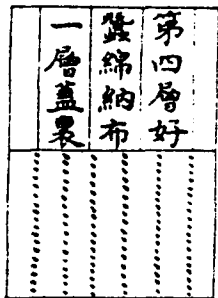 第四層好
蠶綿納布
一層蓋裏